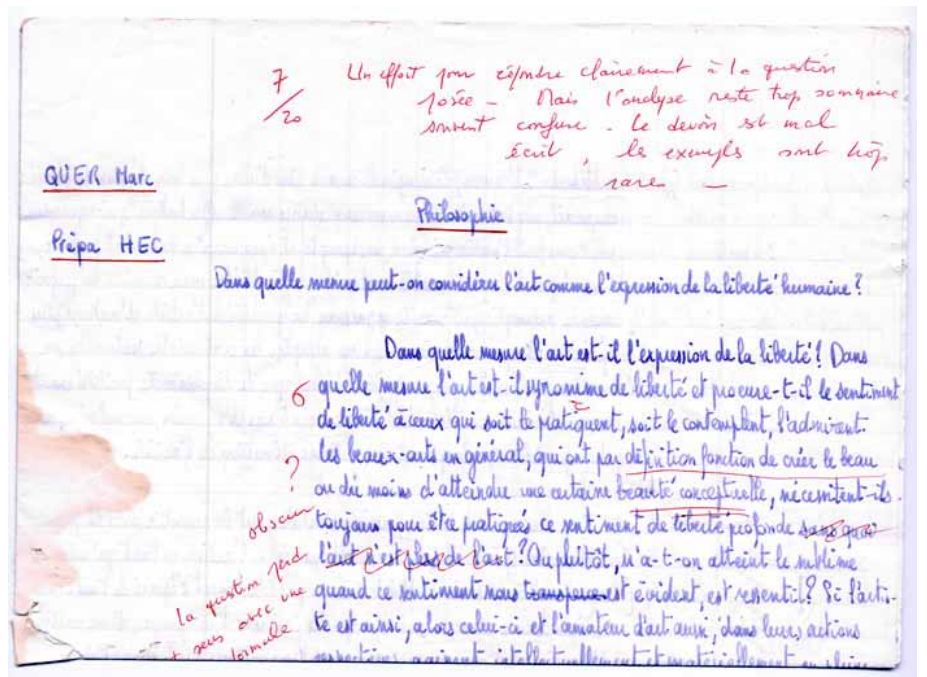 7
/20
Un effort pour répondre clairement à la question
posée - Mais l'analyse reste trop sommaire
souvent confuse - Le devoir est mal
écrit, les exemples sont trop
rares -
QUER Marc
Philosophie
Prépa HEC
Dans quelle mesure peut-on considérer l'art comme l'expression de la liberté humaine?
Dans quelle mesure l'art est-il l'expression de la liberté? Dans
quelle mesure l'art est-il synonime de liberté et procure-t-il le sentiment
de liberté à ceux qui soit le pratiquent, soit le contemplent, l'admirent.
?
les beaux-arts en général, qui ont par définition fonction de créer le beau
ou du moins d'atteindre une certaine beauté conceptuelle, nécessitent-ils
obscur
toujours pour être pratiqués ce sentiment de liberté profonde sans quoi
l'art n'est pas de l'art? Ou plutôt, n'a-t-on atteint le sublime
la question perd
quand ce sentiment nous transparait est évident, est ressentil? Si l'arti-
sens avec une
te est ainsi, alors celui-ci et l'amateur d'art aussi, dans leurs actions
formule
respectives, agissent intellectuellement et matériellement en pleine